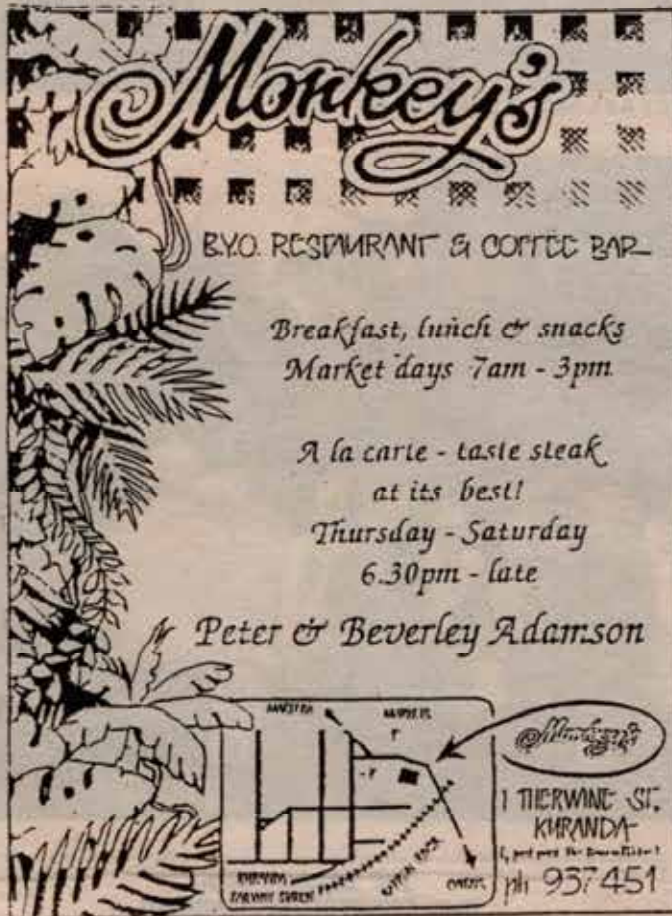 Monkey's
B.Y.O. RESTAURANT & COFFEE BAR
Breakfast, lunch & snacks
Market days 7am - 3pm
A la carte - taste steak
at its best!
Thursday - Saturday
6.30pm - late
Peter & Beverley Adamson
MAREEBA
MARKETS
KURANDA
RAILWAY STATION
CAIRNS
Monkey's
1 THERWINE ST,
KURANDA
ph 937451